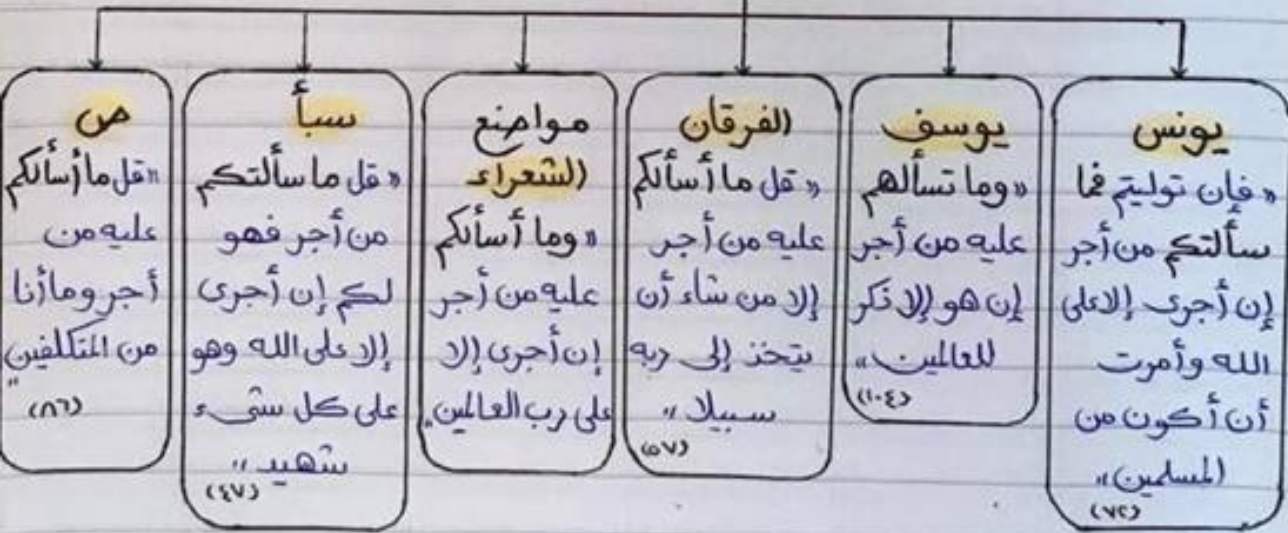 يونس
«فإن توليتم فما
سألتكم من أجر
إن أجرى إلا على
الله وأمرت
أن أكون من
المسلمين»
(٧٢)
يوسف
«وما تسألهم
عليه من أجر
إن هو إلا ذكر
للعالمين»
(١٠٤)
الفرقان
«قل ما أسألكم
عليه من أجر
إلا من شاء أن
يتخذ إلى ربه
سبيلا»
(٥٧)
مواضع
الشعراء
«وما أسألكم
عليه من أجر
إن أجرى إلا
على رب العالمين»
سبأ
«قل ما سألتكم
من أجر فهو
لكم إن أجرى
إلا على الله وهو
على كل شىء
شهيد»
(٤٧)
ص
«قل ما أسألكم
عليه من
أجر وما أنا
من المتكلفين»
(٨٦)